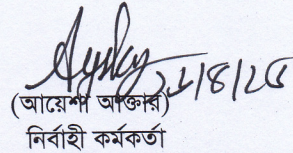 21/8/25
(আয়েশা আক্তার)
নির্বাহী কর্মকর্তা